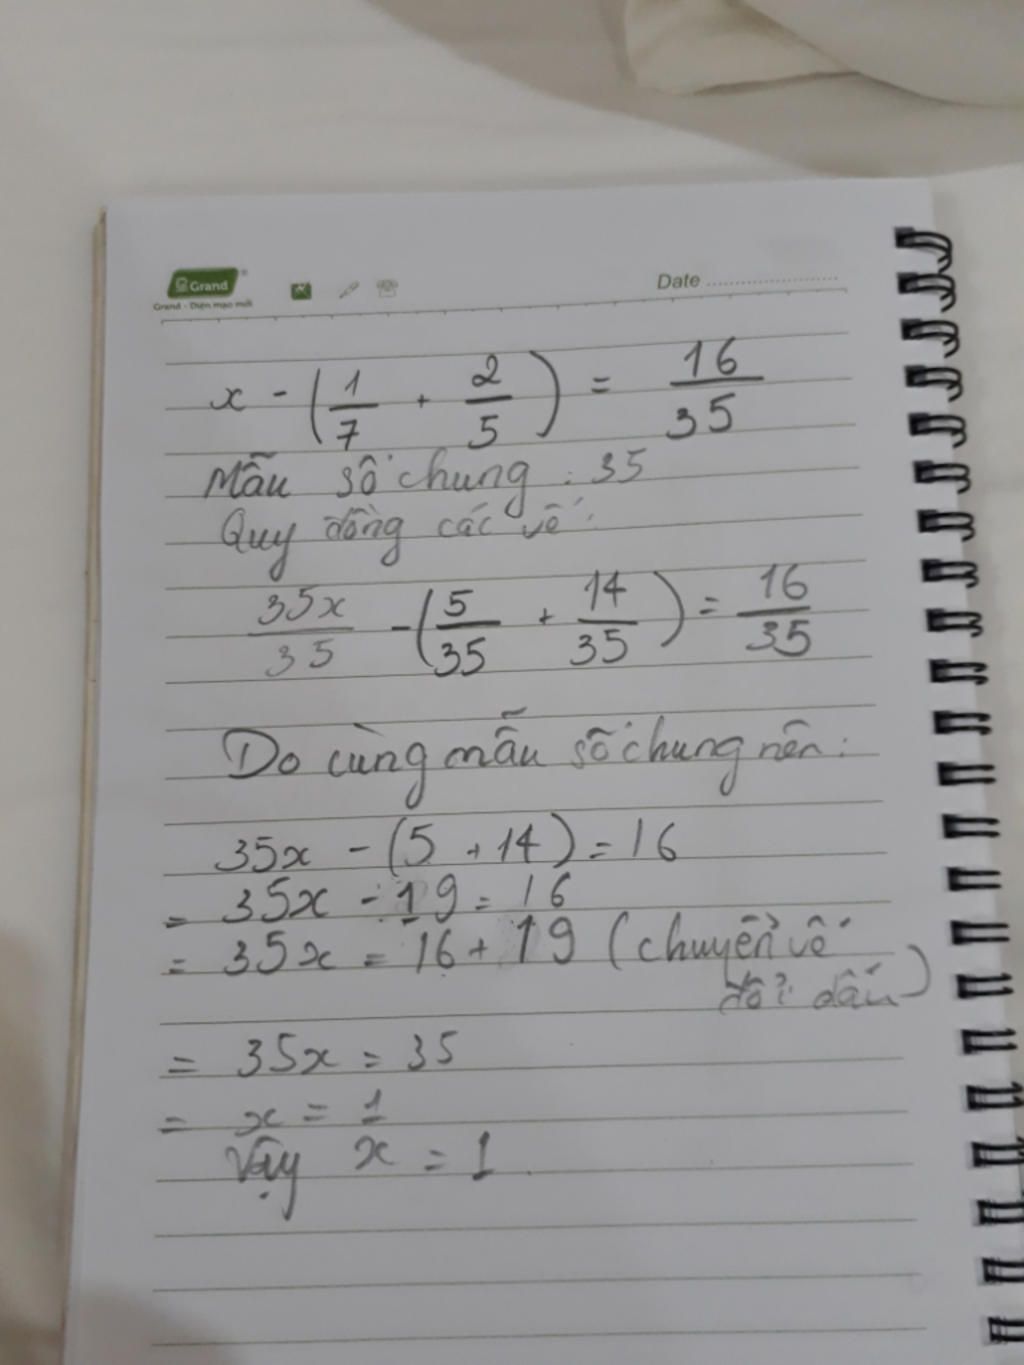 Grand
Grand - Diện mạo mới
Date
x - (1/7 + 2/5) = 16/35
Mẫu số chung : 35
Quy đồng các vế :
35x/35 - (5/35 + 14/35) = 16/35
Do cùng mẫu số chung nên :
35x - (5 + 14) = 16
= 35x - 19 = 16
= 35x = 16 + 19 (chuyển vế
đổi dấu)
= 35x = 35
= x = 1
Vậy x = 1